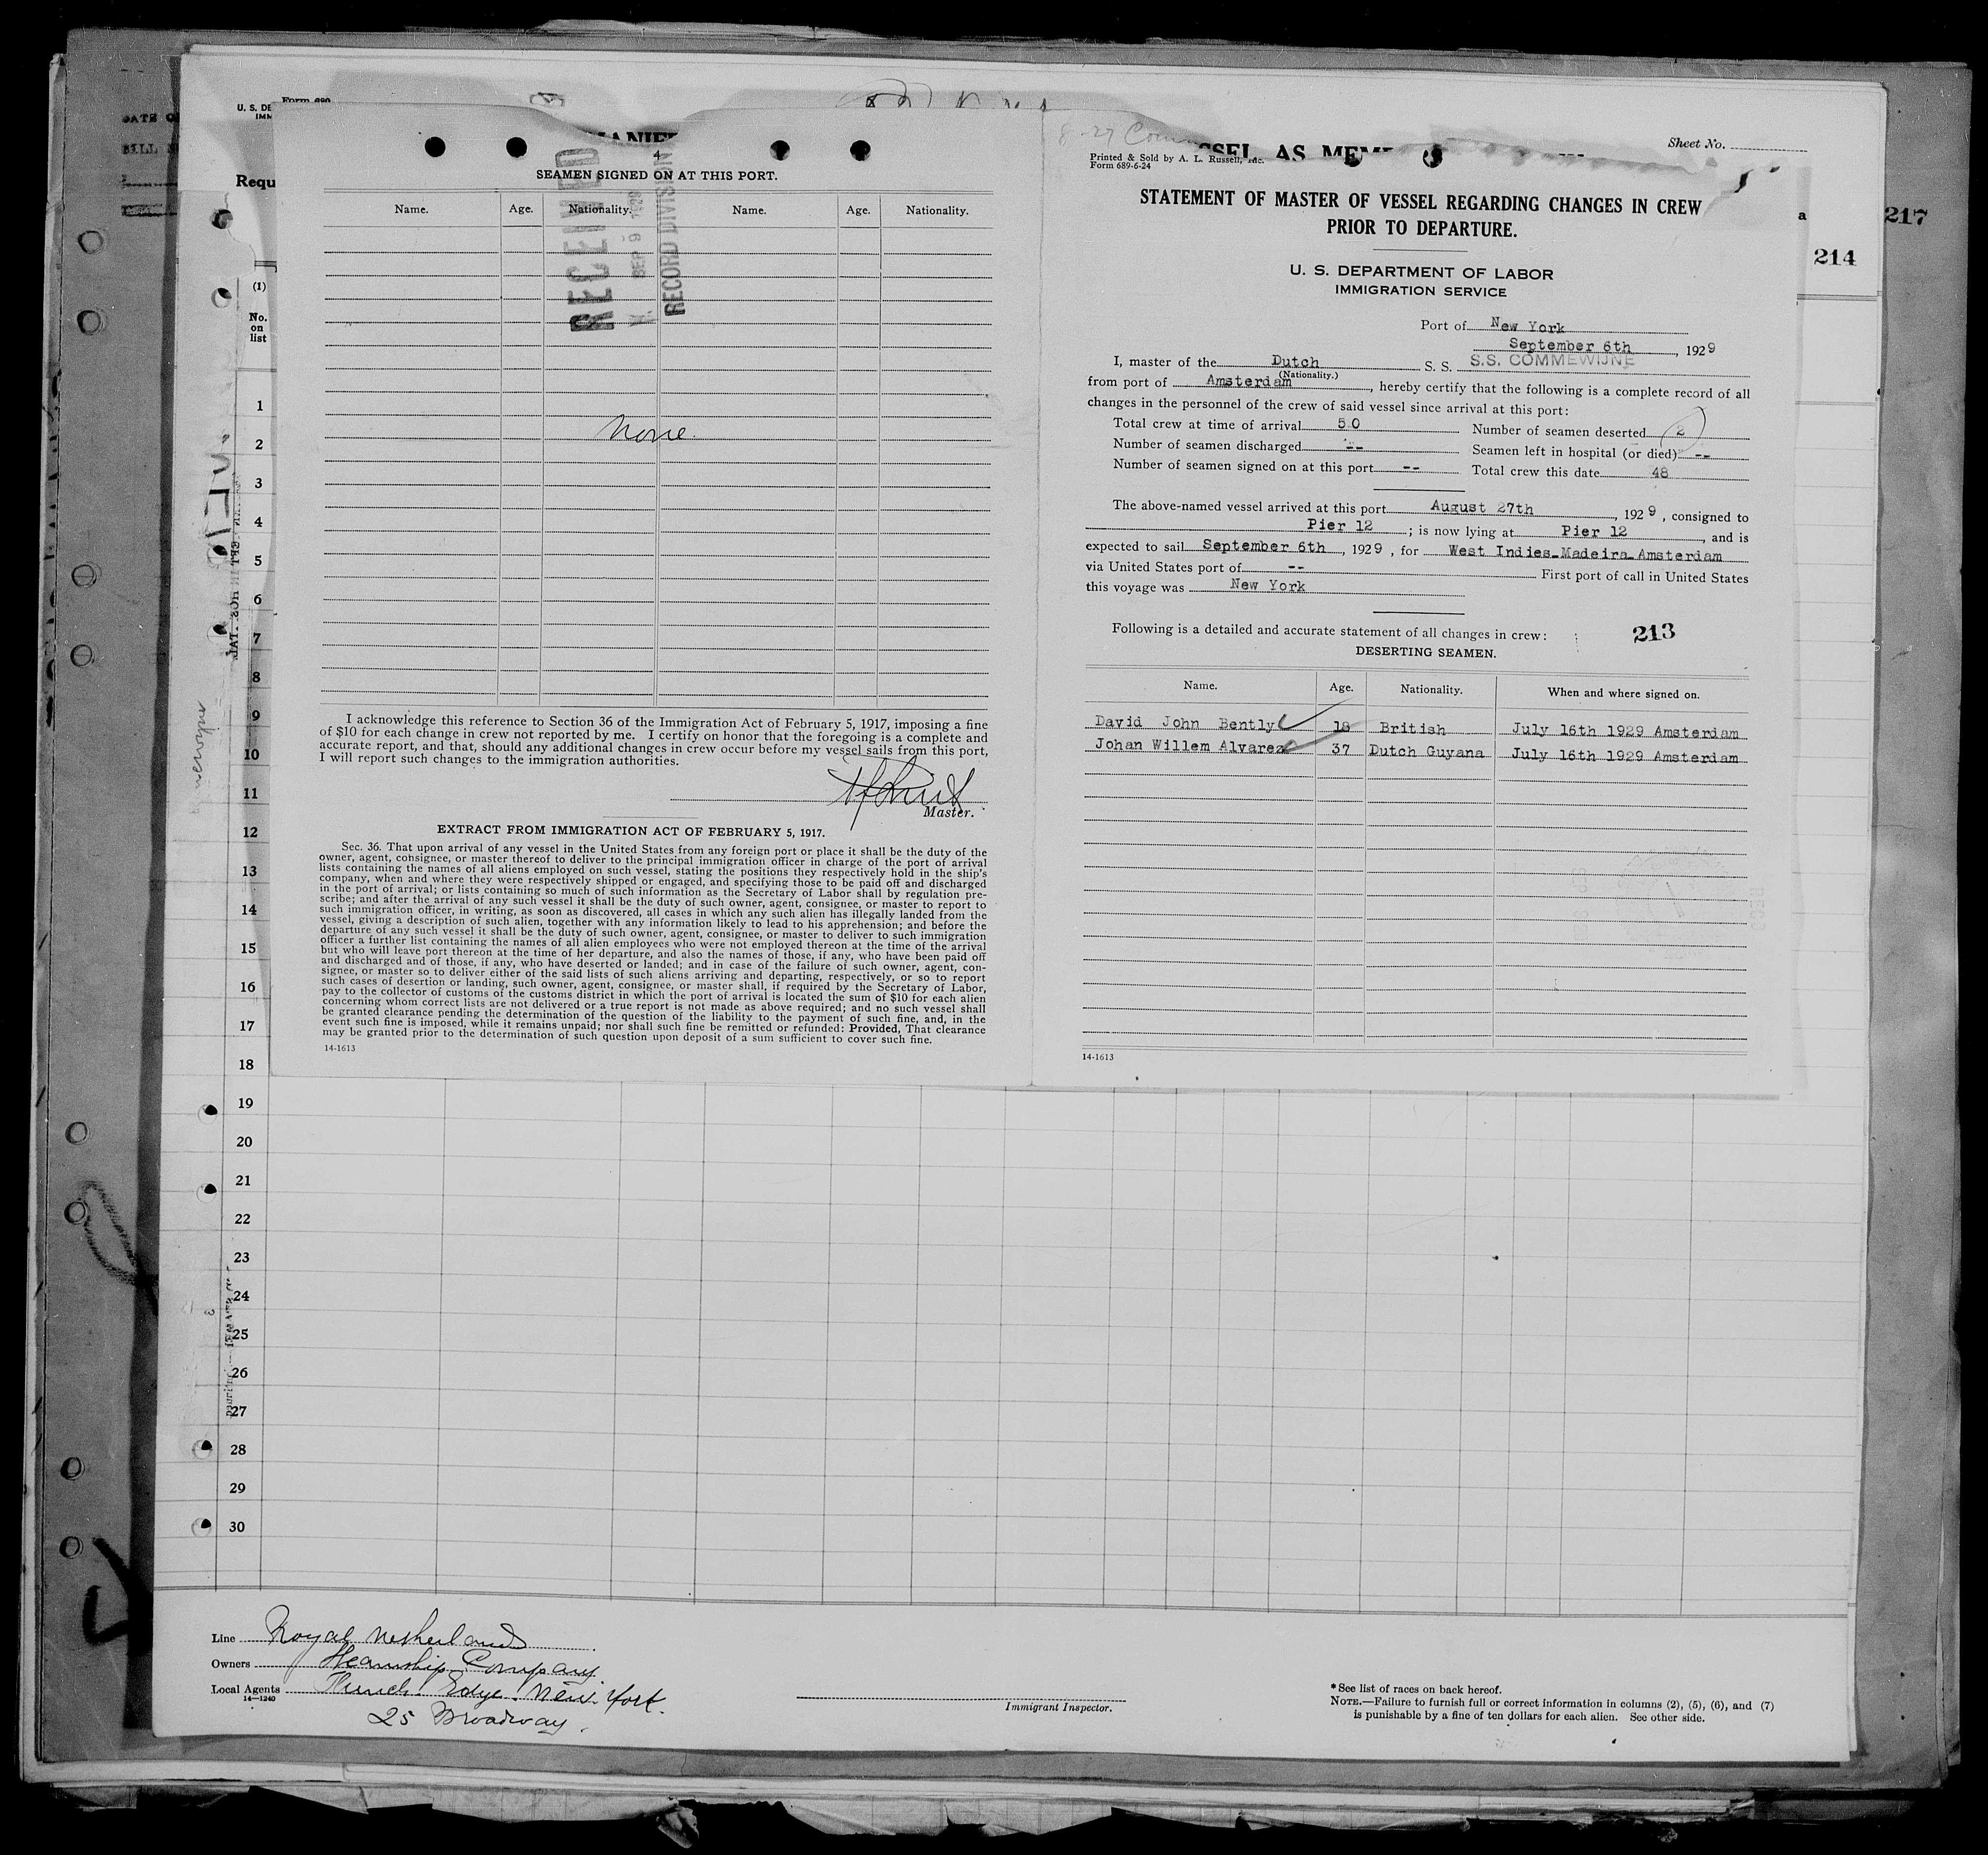 217
214
213
Form 689
U. S. DE
IMM
Requ
(1)
No.
on
list
1
2
3
4
5
6
7
8
9
10
11
12
13
14
15
16
17
18
19
20
21
22
23
24
25
26
27
28
29
30
4
SEAMEN SIGNED ON AT THIS PORT.
Name. Age. Nationality. Name. Age. Nationality.
RECEIVED
SEP 9 1929
RECORD DIVISION
None.
I acknowledge this reference to Section 36 of the Immigration Act of February 5, 1917, imposing a fine
of $10 for each change in crew not reported by me. I certify on honor that the foregoing is a complete and
accurate report, and that, should any additional changes in crew occur before my vessel sails from this port,
I will report such changes to the immigration authorities.
Master.
EXTRACT FROM IMMIGRATION ACT OF FEBRUARY 5, 1917.
Sec. 36. That upon arrival of any vessel in the United States from any foreign port or place it shall be the duty of the
owner, agent, consignee, or master thereof to deliver to the principal immigration officer in charge of the port of arrival
lists containing the names of all aliens employed on such vessel, stating the positions they respectively hold in the ship's
company, when and where they were respectively shipped or engaged, and specifying those to be paid off and discharged
in the port of arrival; or lists containing so much of such information as the Secretary of Labor shall by regulation pre-
scribe; and after the arrival of any such vessel it shall be the duty of such owner, agent, consignee, or master to report to
such immigration officer, in writing, as soon as discovered, all cases in which any such alien has illegally landed from the
vessel, giving a description of such alien, together with any information likely to lead to his apprehension; and before the
departure of any such vessel it shall be the duty of such owner, agent, consignee, or master to deliver to such immigration
officer a further list containing the names of all alien employees who were not employed thereon at the time of the arrival
but who will leave port thereon at the time of her departure, and also the names of those, if any, who have been paid off
and discharged and of those, if any, who have deserted or landed; and in case of the failure of such owner, agent, con-
signee, or master so to deliver either of the said lists of such aliens arriving and departing, respectively, or so to report
such cases of desertion or landing, such owner, agent, consignee, or master shall, if required by the Secretary of Labor,
pay to the collector of customs of the customs district in which the port of arrival is located the sum of $10 for each alien
concerning whom correct lists are not delivered or a true report is not made as above required; and no such vessel shall
be granted clearance pending the determination of the question of the liability to the payment of such fine, and, in the
event such fine is imposed, while it remains unpaid; nor shall such fine be remitted or refunded: Provided, That clearance
may be granted prior to the determination of such question upon deposit of a sum sufficient to cover such fine.
14-1613
Sheet No.
Printed & Sold by A. L. Russell, Inc.
Form 689-6-24
STATEMENT OF MASTER OF VESSEL REGARDING CHANGES IN CREW
PRIOR TO DEPARTURE.
U. S. DEPARTMENT OF LABOR
IMMIGRATION SERVICE
Port of New York
September 6th, 1929
I, master of the Dutch S. S. S.S. COMMEWIJNE
(Nationality.)
from port of Amsterdam, hereby certify that the following is a complete record of all
changes in the personnel of the crew of said vessel since arrival at this port:
Total crew at time of arrival 50 Number of seamen deserted 2
Number of seamen discharged -- Seamen left in hospital (or died) --
Number of seamen signed on at this port -- Total crew this date 48
The above-named vessel arrived at this port August 27th, 1929, consigned to
Pier 12; is now lying at Pier 12, and is
expected to sail September 6th, 1929, for West Indies-Madeira-Amsterdam
via United States port of -- First port of call in United States
this voyage was New York
Following is a detailed and accurate statement of all changes in crew:
DESERTING SEAMEN.
Name. Age. Nationality. When and where signed on.
David John Bently 18 British July 16th 1929 Amsterdam
Johan Willem Alvarez 37 Dutch Guyana July 16th 1929 Amsterdam
14-1613
Line Royal Netherlands
Owners Steamship Company.
Local Agents Funch. Edye. New York.
14-1240
25 Broadway.
Immigrant Inspector.
* See list of races on back hereof.
NOTE.—Failure to furnish full or correct information in columns (2), (5), (6), and (7)
is punishable by a fine of ten dollars for each alien. See other side.